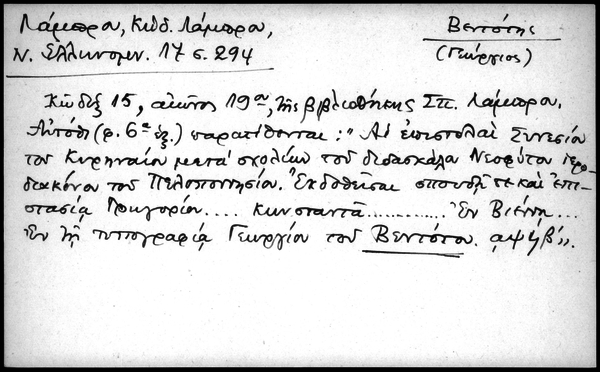 Λάμπρου, Κώδ. Λάμπρου,
Ν. Ἑλληνομν. 17 σ. 294
Βεντότης
(Γεώργιος)
Κῶδιξ 15, αἰῶνος 19ου, τῆς βιβλιοθήκης Σπ. Λάμπρου.
Αὐτόθι (φ. 6α ἑξ.) παρατίθενται: "Αἱ ἐπιστολαὶ Συνεσίου
τοῦ Κυρηναίου μετὰ σχολίων τοῦ διδασκάλου Νεοφύτου ἱερο-
διακόνου τοῦ Πελοποννησίου. Ἐκδοθεῖσαι σπουδῇ τε καὶ ἐπι-
στασίᾳ Γρηγορίου.... Κωνσταντᾶ............ Ἐν Βιέννῃ...
Ἐν τῇ τυπογραφίᾳ Γεωργίου τοῦ Βεντότου. ͵αψϟβ΄".